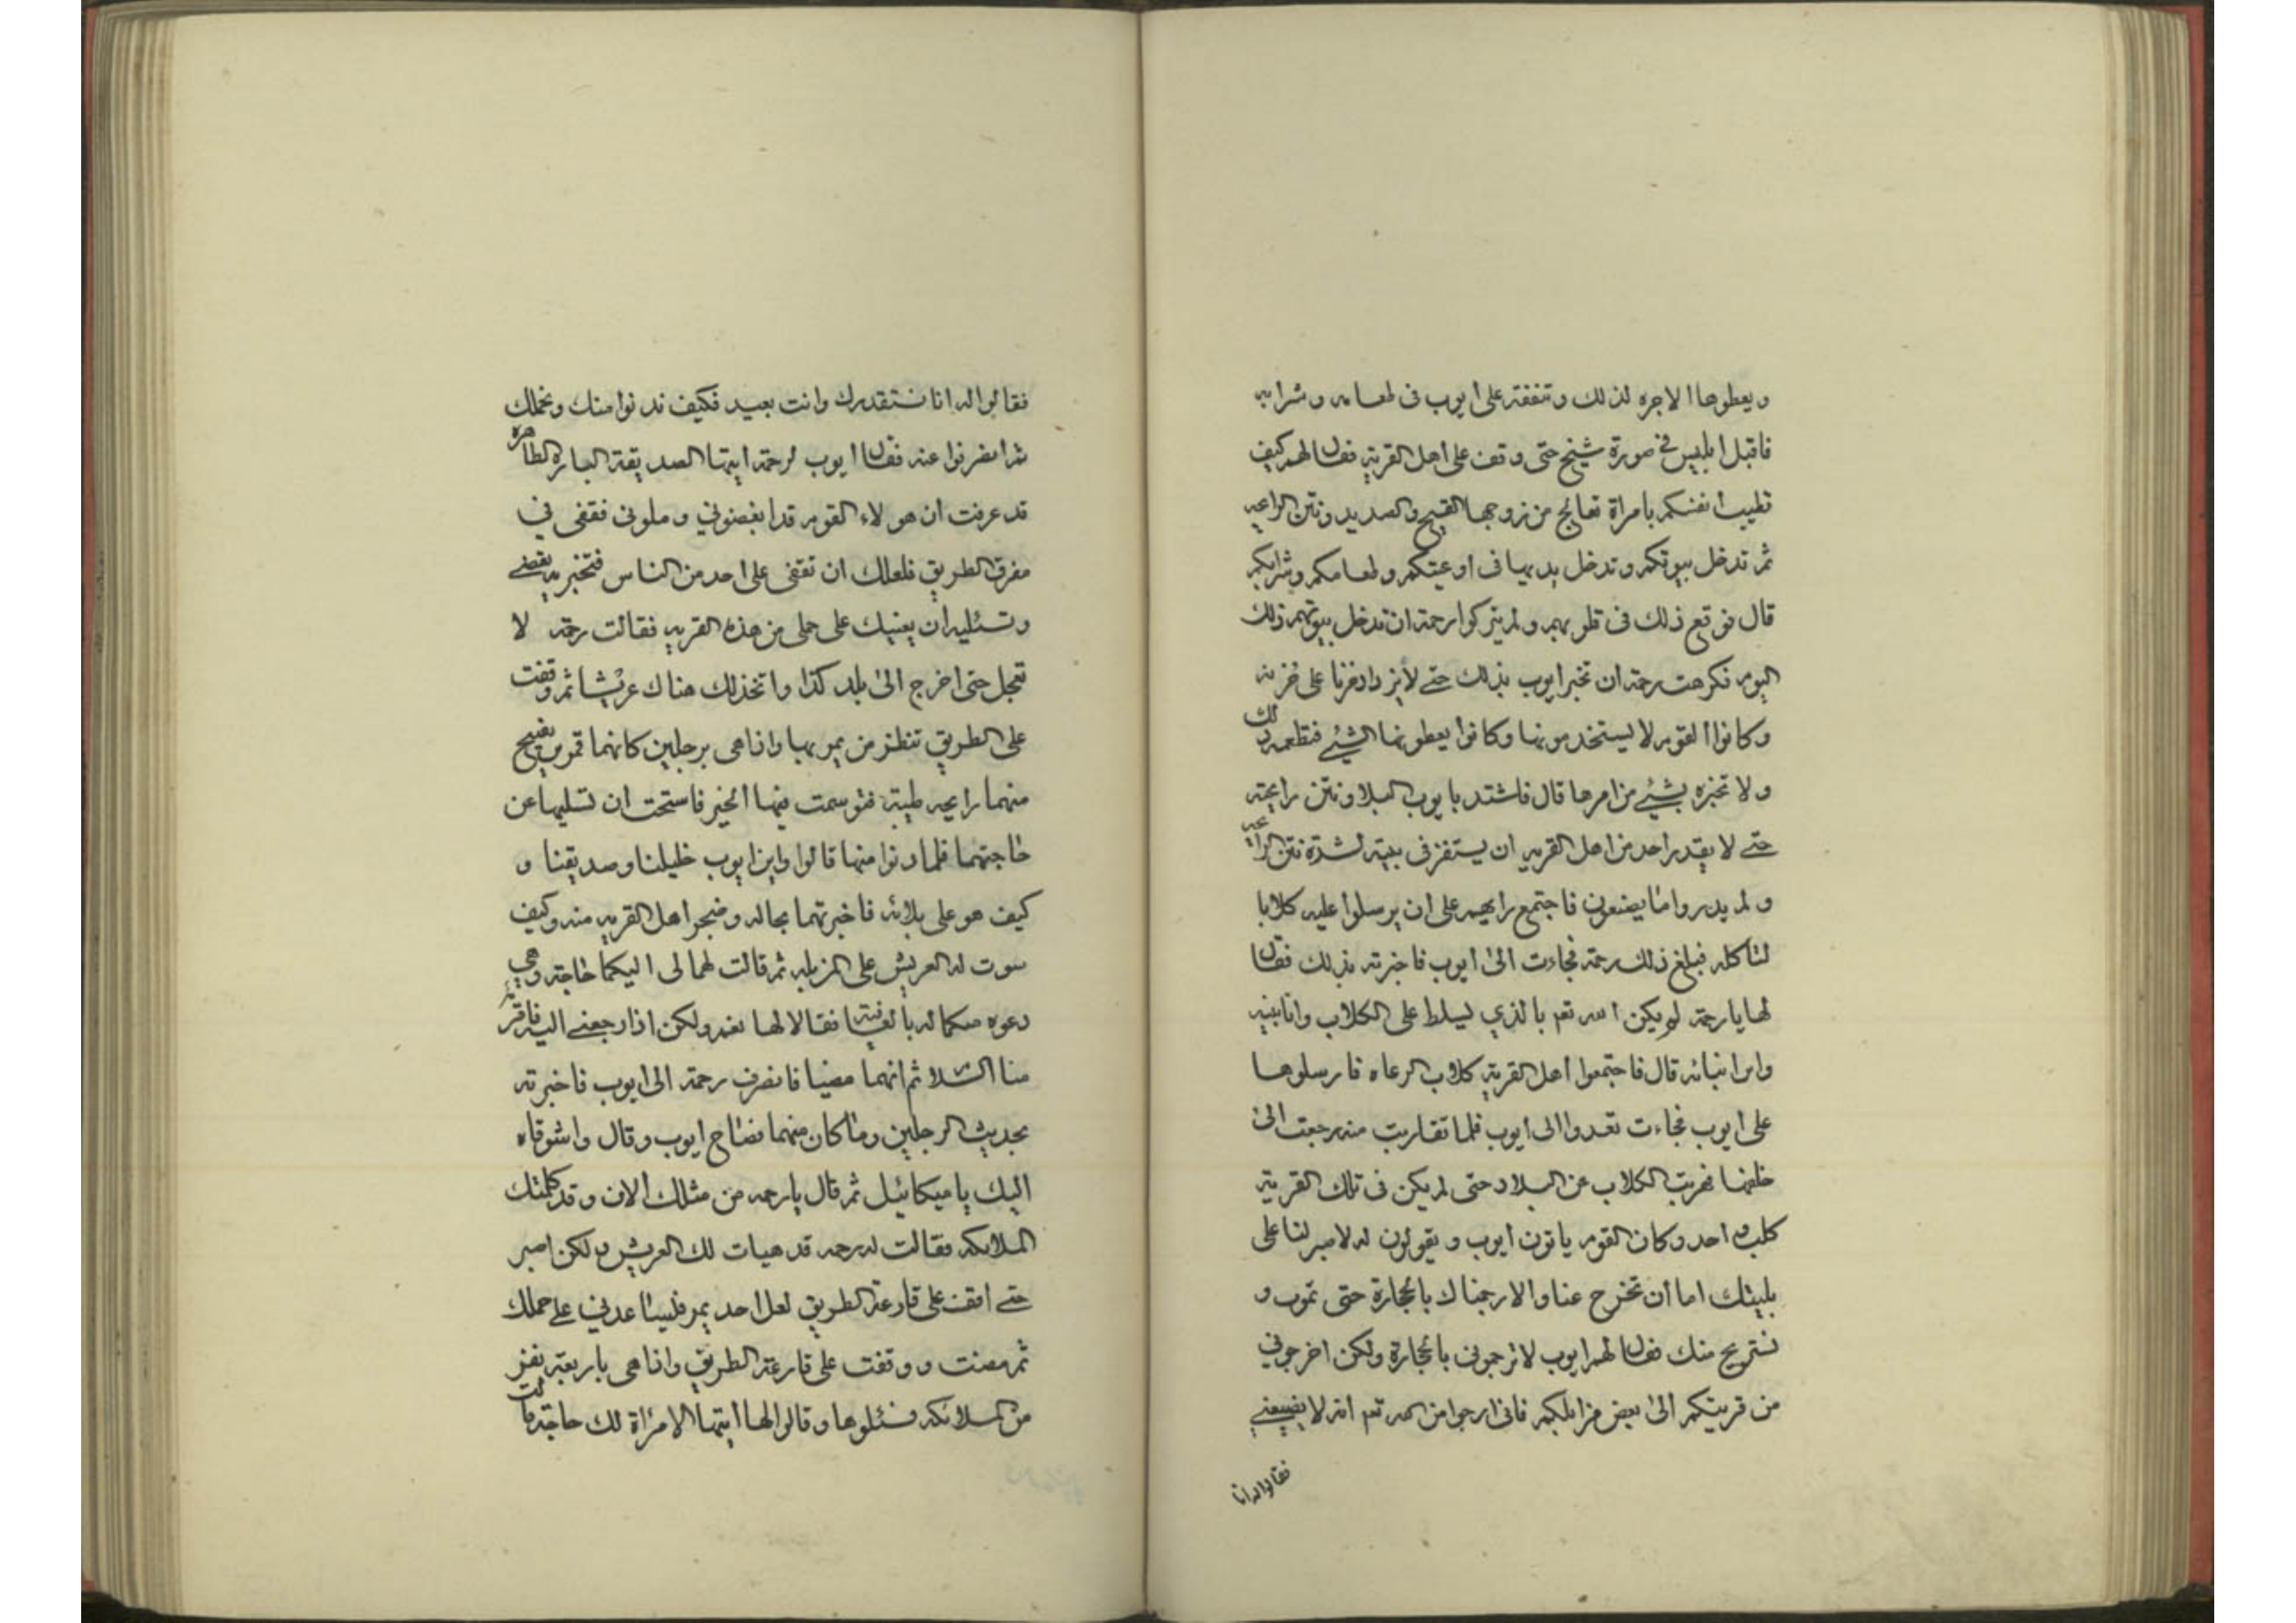 ويعطوها الاجره لذلك وتنفقة على ايوب فى طعامه وشرابه
فاقبل ابليس في صورة شيخ حتى وقف على اهل القرية فقال لهم كيف
تطيب انفسكم بامراة تعالج من زوجها القيح والصديد ونتن الرايحه
ثم تدخل بيوتكم وتدخل يديها فى اوعيتكم وطعامكم وشرابكم
قال فوقع ذلك فى قلوبهم ولم يتركوا رحمة ان تدخل بيوتهم ذلك
اليوم فكرهت رحمة ان تخبر ايوب بذلك حتى لا يزداد حزنا على حزنه
وكانوا القوم لا يستخدمونها وكانوا يعطونها الشيء فتطعمه ذلك
ولا تخبره بشيء من امرها قال فاشتد بايوب البلا ونتن رايحته
حتى لا يقدر احد من اهل القريه ان يستقر فى بيته لشدة نتن الرايحه
ولم يدروا ما يصنعون فاجتمع رايهم على ان يرسلوا عليه كلابا
لتاكله فبلغ ذلك رحمة فجاءت الى ايوب فاخبرته بذلك فقال
لها يا رحمة لم يكن الله تعم بالذي يسلط على الكلاب وانا نبيه
وابن انبيائه قال فاجتمعوا اهل القرية كلاب الرعاه فارسلوها
على ايوب فجاءت تعدوا الى ايوب فلما تقاربت منه رجعت الى
خلفها فهربت الكلاب عن البلاد حتى لم يكن فى تلك القرية
كلب واحد وكان القوم ياتون ايوب ويقولون له لا صبر لنا على
بليتك اما ان تخرج عنا والا رجمناك بالحجارة حتى تموت و
نستريح منك فقال لهم ايوب لا ترجمونى بالحجارة ولكن اخرجوني
من قريتكم الى بعض مزابلكم فانى ارجوا من الله تعم انه لا يضيعني
فقالوا له انا
فقالوا له انا نستقدرك وانت بعيد فكيف ندنوا منك ونحملك
ثم انصرفوا عنه فقال ايوب لرحمة ايتها الصديقة الباره الطاهره
قد عرفت ان هولاء القوم قد ابغضوني وملونى فقفى في
مفرق الطريق فلعلك ان تقفى على احد من الناس فتخبريه بقصتي
وتسئليه ان يعينك على حملى من هذه القريه فقالت رحمة لا
تعجل حتى اخرج الى بلد كذا واتخذ لك هناك عريشا ثم وقفت
على الطريق تنظر من يمر بها واذا هى برجلين كانهما قمرين يفيح
منهما رايحه طيبة فتوسمت فيهما الخير فاستحت ان تسئلهما عن
حاجتهما فلما دنوا منها قالوا واين ايوب خليلنا وصديقنا و
كيف هو على بلائه فاخبرتهما بحاله وضجر اهل القريه منه وكيف
سوت له العريش على المزبله ثم قالت لهما لى اليكما حاجة وهي
دعوه منكما له بالعافية فقالا لها نعم ولكن اذا رجعتي اليه فاقرئيه
منا السلام ثم انهما مضيا فانصرف رحمة الى ايوب فاخبرته
بحديث الرجلين وما كان منهما فصاح ايوب وقال واشوقاه
اليك يا ميكائيل ثم قال يا رحمه من مثلك الان وقد كلمتك
الملايكه فقالت له رحمه قد هيات لك العريش ولكن اصبر
حتى اقف على قارعة الطريق لعل احد يمر فليساعدني على حملك
ثم مضت ووقفت على قارعة الطريق واذا هى باربعة نفر
من الملائكه فسئلوها وقالوا لها ايتها الامراة لك حاجة قالت